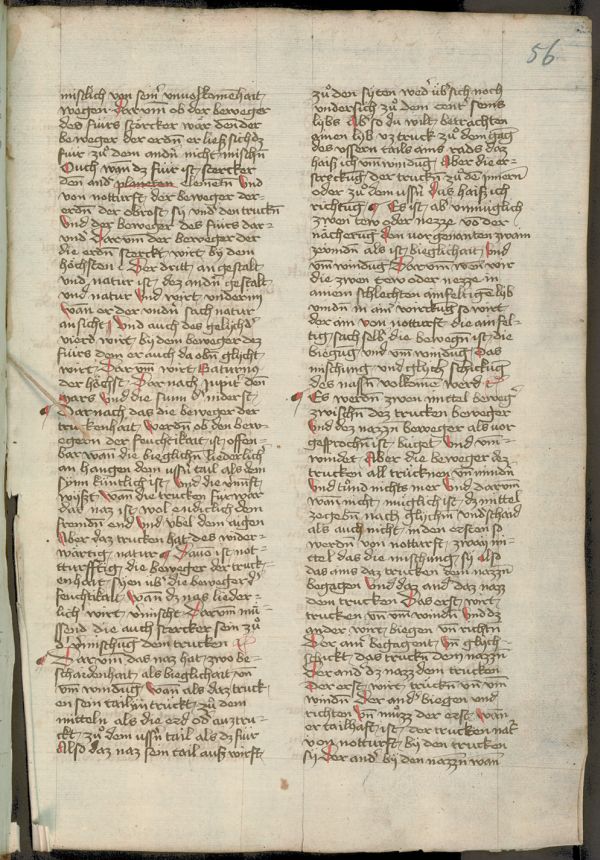 56
mislich von seīr unuolkomēhait
wegen Darum̄ ob der beweger
des fúrs storcker wār den der
beweger der erdn̄ er lieſſ sich dz
fúr zů dem andn̄ nicht mischn̄
Ouch wan̄ dz fúr ist stercker
den̄ and planeten elemētn̄ Und
von notturft der beweger der
erdn̄ der obrost sy und den truckn̄
Und der beweger des fúrs dar
und Darum̄ der beweger der
die erdn̄ sterckt wirt by dem
hőchsten Der dritt an gestalt
und natur ist dez andn̄ gestalt
und natur Und wirt undern
wan̄ er der undn̄ sach natur
an sicht Und auch des gelychd
vierd wirt by dem beweger dez
fúrs dem er auch da obn̄ glycht
wirt Darum̄ wirt Saturnus
der hőchst Dar nach Jupitr den̄
mars Und die sunn d nidersst
Dar nach das die beweger der
truckenhait werdn̄ ob den bew
egern der feuchtikait ist offen
bar wan̄ die bieglichn̄ liederlich
an hangen dem uſſn̄ tail als dem
synn kúntlich ist Und die v̄nūft
wyſt wan̄ die trucken fúr war
daz naz ist wol endiclich dem
fremdn̄ end und úbel dem aigen
Aber daz trucken hat des wider
wārtig natur Davō ist not
turfftig die beweger der truck
enhait syen úb die beweger d
feuchtikait wan̄ dz nas lieder
lich wirt v̄mischt Darum̄ mů
ssend die auch stercker sein zů
d v̄mischūg dem trucken
Darum̄ das naz hat zwo be
schaidenhait als bieglichait un̄
um̄ windūg wan̄ als daz truck
en sein tailūn truckt zů dem
mitteln als die erd od auztru
ckt zů dem uſſn̄ tail als dz fúr
Also daz naz sein tail auß wirft
zů den syten wed úb sich noch
undersich zů dem cent seins
lybs Also du wilt betrachten
ainen lyb uz truck zů dem gāg
des uſſern tails ains rads daz
haiſſ ich um̄ windūg Aber die er
streckūg der truckn̄ zů de inern
oder zů dem uſſn̄ dus haiſſ ich
richtūg Es ist ab unmüglich
zwen tew oder nezze vō der
nāchevūg den vorgenanten zwain
zewindn̄ als ist bieglichait Und
um̄ windūg Darum̄ wen̄ wir
die zwen tew oder nezze in
ainem schlechten ainfeltigē lyb
undn̄ in aim̄ wirckūg so wirt
der ain von notturft die ainfel
tig sach selb die bewegn̄ ist die
biegūg und um̄ windūg Das
mischung und glych schickūg
des nassn̄ volkomē werd
Es werdn̄ zwen mittel beweg
zwischn̄ dez trucken beweger
Und dez nazzn̄ beweger als vor
gesprochn̄ ist bügel und um̄
windet Aber die beweger dez
trucken all trücknen um̄ windn̄
Und tůnd nichts mer Und darum̄
wan̄ nicht muglich ist dz mittel
zegebn̄ nach glychn̄ undschaid
als auch nicht in den ersten so
werdn̄ von notturft zwain mi
ttel das die mischung sy also
das ains daz trucken dem nazzn̄
begegen Und daz and daz naz
dem trucken Das erst wirt
trucken um̄ um̄ windn̄ Und dz
ander wirt biegen un̄ richtn̄
Der ain begagent un̄ glych
schickt das truckn̄ dem nazzn̄
Der and dz nazz dem trucken
Der erst wirt truckn̄ un̄ um̄
windn̄ Der and biegen und
richten Un̄ můzz der erst wan̄
er tailhaft ist der trucken nat
von notturft by den trucken
sy Der and by den nazzn̄ wan̄